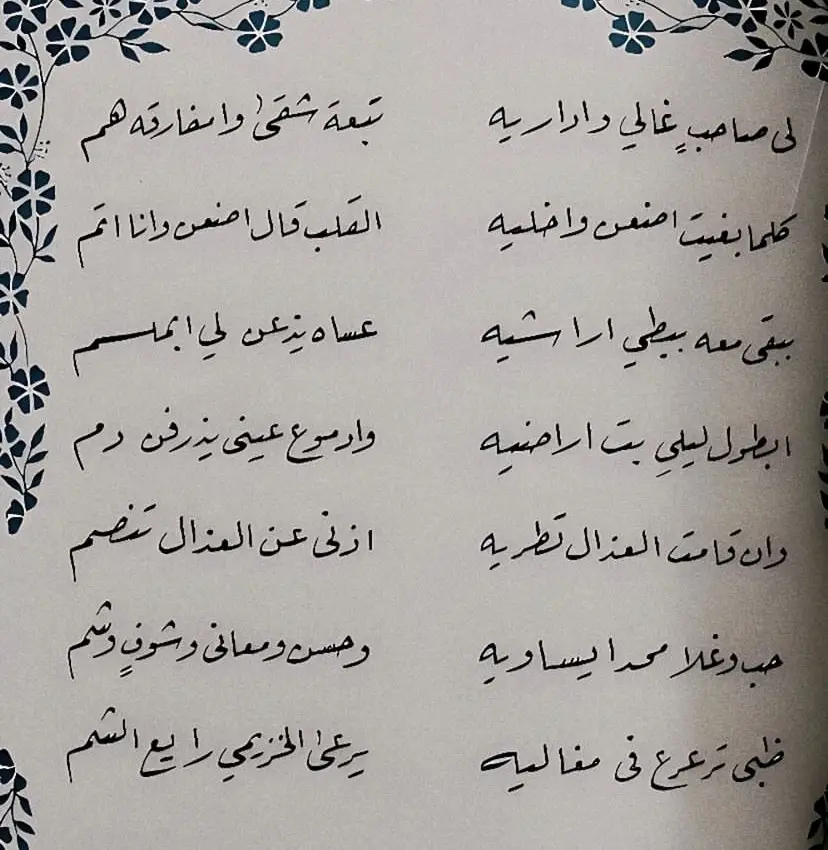 لى صاحبٍ غالي واداريه تبعة شقى وامفارقه هم
كلما بغيت اصنعن واخليه القلب قال اصنعن وانا اتم
ببقى معه ببطي اراشيه عساه يذعن لي ابملسم
ابطول ليلي بت اراضيه وادموع عينى يذرفن دم
وان قامت العذال تطريه اذنى عن العذال تنصم
حب وغلا محدا يساويه وحسن ومعانى وشوفٍ وشم
ظبى ترعرع فى مغاليه يرعى الخزيمي رايع الشم